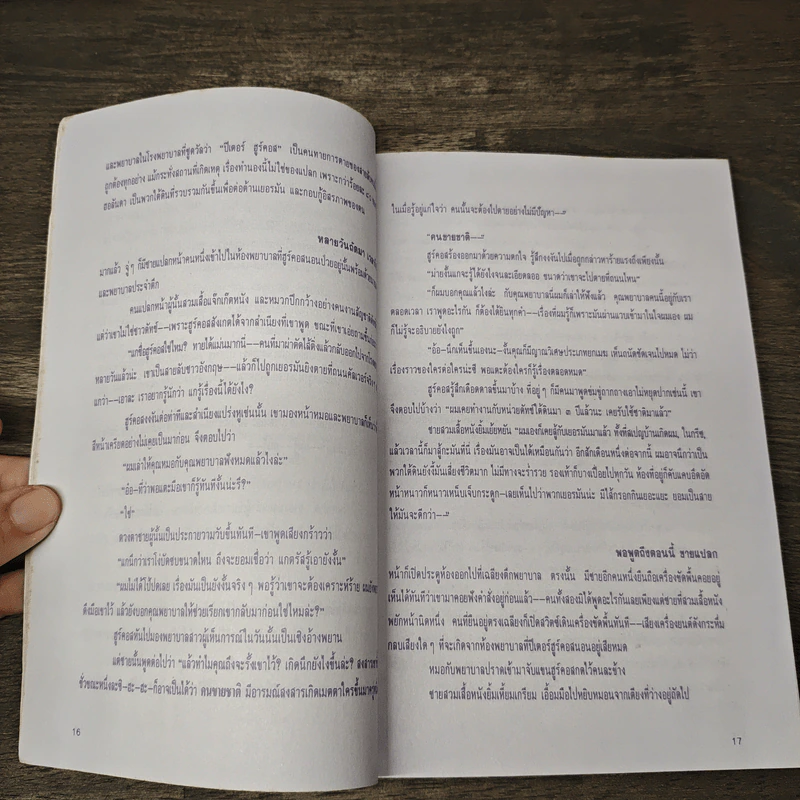 และพยาบาลในโรงพยาบาลที่ซูดวัลว่า "ปีเตอร์ ฮูร์คอส" เป็นคนทายการตายของสายลับ
ถูกต้องทุกอย่าง แม้กระทั่งสถานที่เกิดเหตุ เรื่องทำนองนี้ไม่ใช่ของแปลก เพราะกว่าร้อยละ
ฮอลันดา เป็นพวกใต้ดินที่รวบรวมกันขึ้นเพื่อต่อต้านเยอรมัน และกอบกู้อิสรภาพของตน
หลายวันถัดมา
มากแล้ว จู่ๆ ก็มีชายแปลกหน้าคนหนึ่งเข้าไปในห้องพยาบาลที่ฮูร์คอสนอนป่วยอยู่นั้นพร้อมด้วย
และพยาบาลประจำตึก
คนแปลกหน้าผู้นั้นสวมเสื้อแจ๊กเก็ตหนัง และหมวกปีกกว้างอย่างคนงานสัญชาติดัทช์
แต่ว่าเขาไม่ใช่ชาวดัทช์—เพราะฮูร์คอสสังเกตได้จากสำเนียงที่เขาพูด ขณะที่เขาเอ่ยถามขึ้น
"แกชื่อฮูร์คอสใช่ไหม? ทายได้แม่นมากนี่—คนที่มาผ่าตัดไส้ติ่งแล้วกลับออกไปจาก
หลายวันแล้วน่ะ เขาเป็นสายลับชาวอังกฤษ—แล้วก็ไปถูกเยอรมันยิงตายที่ถนนคัลเวอร์
แกว่า—เอาละ เราอยากรู้นักว่า แกรู้เรื่องนี้ได้ยังไง?
ฮูร์คอสงงงันต่อท่าทีและสำเนียงแปร่งหูเช่นนั้น เขามองหน้าหมอและพยาบาลก็เห็น
สีหน้าเครียดอย่างไม่เคยเป็นมาก่อน จึงตอบไปว่า
"ผมเล่าให้คุณหมอกับคุณพยาบาลฟังหมดแล้วไงล่ะ"
"อ้อ—ที่ว่าพอแตะมือเขาก็รู้ทันทีงั้นน่ะรึ?"
"ใช่"
ดวงตาชายผู้นั้นเป็นประกายวาวับขึ้นทันที—เขาพูดเสียงกร้าวว่า
"แกนึกว่าเราโง่บัดซบขนาดไหน ถึงจะยอมเชื่อว่า แกตรัสรู้เอายังงั้น"
"ผมไม่ได้โป้ปดเลย เรื่องมันเป็นยังงั้นจริงๆ พอรู้ว่าเขาจะต้องเคราะห์ร้าย ผม
ดึงมือเขาไว้ แล้วยังบอกคุณพยาบาลให้ช่วยเรียกเขากลับมาก่อนใช่ไหมล่ะ?"
ฮูร์คอสหันไปมองพยาบาลสาวผู้เห็นการณ์ในวันนั้นเป็นเชิงอ้างพยาน
แต่ชายนั้นพูดต่อไปว่า "แล้วทำไมคุณถึงจะรั้งเขาไว้? เกิดนึกยังไงขึ้นล่ะ? สงสาร
ชั่วขณะหนึ่งละซิ—ฮะ—ฮะ—ก็อาจเป็นได้ว่า คนขายชาติ มีอารมณ์สงสารเกิดเมตตาใครขึ้นมา
16
ในเมื่อรู้อยู่แก่ใจว่า คนนั้นจะต้องไปตายอย่างไม่มีปัญหา—"
"คนขายชาติ—"
ฮูร์คอสร้องออกมาด้วยความตกใจ รู้สึกงงงันไปเมื่อถูกกล่าวหาร้ายแรงถึงเพียงนั้น
"ม่ายงั้นแกจะรู้ได้ยังไงจนละเอียดลออ ขนาดว่าเขาจะไปตายที่ถนนไหน"
"ก็ผมบอกคุณแล้วไงล่ะ กับคุณพยาบาลนี่ผมก็เล่าให้ฟังแล้ว คุณพยาบาลคนนี้อยู่กับเรา
ตลอดเวลา เราพูดอะไรกัน ก็ต้องได้ยินทุกคำ—เรื่องที่ผมรู้ก็เพราะมันผ่านแวบเข้ามาในใจผมเอง ผม
ก็ไม่รู้จะอธิบายยังไงถูก"
"อ้อ—นึกเห็นขึ้นเองน่ะ—งั้นคุณก็มีญาณวิเศษประเภทยกเมฆ เห็นถนัดชัดเจนไปหมด ไม่ว่า
เรื่องราวของใครต่อใครน่ะซี พอแตะต้องใครก็รู้เรื่องตลอดหมด"
ฮูร์คอสรู้สึกเดือดดาลขึ้นมาบ้าง ที่อยู่ๆ ก็มีคนมาพูดข่มขู่ถากถางเอาไม่หยุดปากเช่นนี้ เขา
จึงตอบไปบ้างว่า "ผมเคยทำงานกับหน่วยดัทช์ใต้ดินมา ๓ ปีแล้วนะ เคยรับใช้ชาติมาแล้ว"
ชายสวมเสื้อหนังยิ้มเย่ยหยัน "ผมเองก็เคยสู้กับเยอรมันมาแล้ว ทั้งที่สเปญบ้านเกิดผม, ในกรีซ,
แล้วเวลานี้ก็มาสู้กะมันที่นี่ เรื่องมันอาจเป็นได้เหมือนกันว่า อีกสักเดือนหนึ่งต่อจากนี้ ผมอาจนึกว่าเป็น
พวกใต้ดินยังงี้มันเสี่ยงชีวิตมาก ไม่มีทางจะร่ำรวย รองเท้าก็บางเปื่อยไปทุกวัน ห้องที่อยู่ก็คับแคบอึดอัด
หน้าหนาวก็หนาวเหน็บเจ็บกระดูก—เลยเห็นไปว่าพวกเยอรมันน่ะ มีไส้กรอกกินเยอะแยะ ยอมเป็นสาย
ให้มันจะดีกว่า—"
พอพูดถึงตอนนี้ ชายแปลก
หน้าก็เปิดประตูห้องออกไปที่เฉลียงตึกพยาบาล ตรงนั้น มีชายอีกคนหนึ่งยืนถือเครื่องขัดพื้นคอยอยู่
เห็นได้ทันทีว่าเขามาคอยฟังคำสั่งอยู่ก่อนแล้ว—คนทั้งสองมิได้พูดอะไรกันเลยเพียงแต่ชายที่สวมเสื้อหนัง
พยักหน้านิดหนึ่ง คนที่ยืนอยู่ตรงเฉลียงก็เปิดสวิตช์เดินเครื่องขัดพื้นทันที—เสียงเครื่องยนต์ดังกระหึ่ม
กลบเสียงใดๆ ที่จะเกิดจากห้องพยาบาลที่ปีเตอร์ฮูร์คอสนอนอยู่เสียหมด
หมอกับพยาบาลปราดเข้ามาจับแขนฮูร์คอสกดไว้คนละข้าง
ชายสวมเสื้อหนังยิ้มเหี้ยมเกรียม เอื้อมมือไปหยิบหมอนจากเตียงที่ว่างอยู่ถัดไป
17